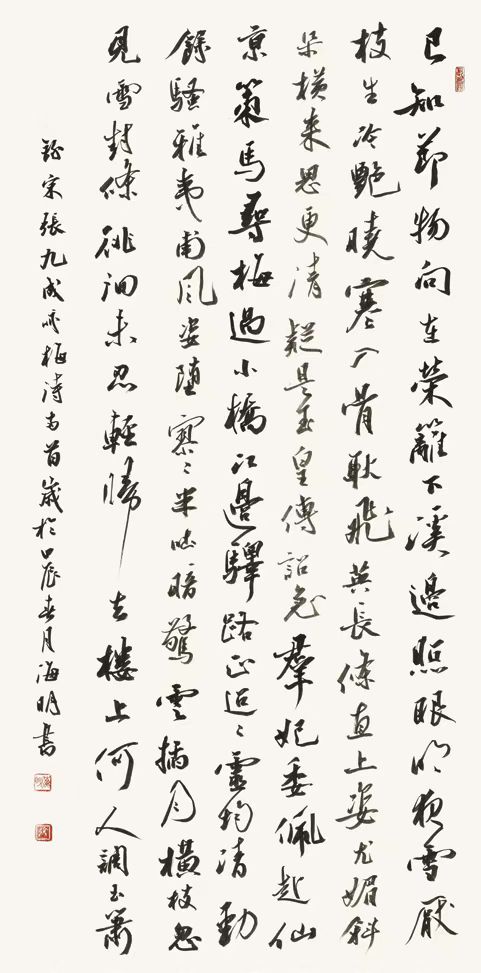 已知節物向春榮籬下溪邊照眼明夜雪厭
枝生冷艷曉寒入骨耿飛英長條直上姿尤媚斜
朵橫來思更清疑是玉皇傳詔急羣妃委佩赴仙
京策馬尋梅過小橋江邊驛路正迢〻靈均清勁
餘騷雅夷甫風姿墮寥〻半吐暗驚雲掩月橫枝忽
見雪封條徘徊未忍輕歸去樓上何人調玉簫
錄宋張九成咏梅詩兩首歲於甲辰春月海明書